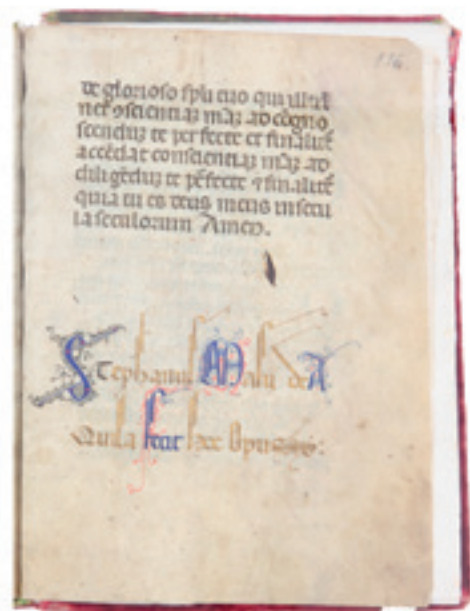 116.
de glorioso spū tuo qui illūi
net ꝯscientiaȝ māȝ ad cōgno
scenduȝ te perfecte et finalit̄
accēdat conscientiaȝ māȝ ad
diligēduȝ te pfecte ⁊ finalit̄
quia tu es deus meus in secu
la seculorum Amen.
Stephanus de A
Quila fecit hoc Opus